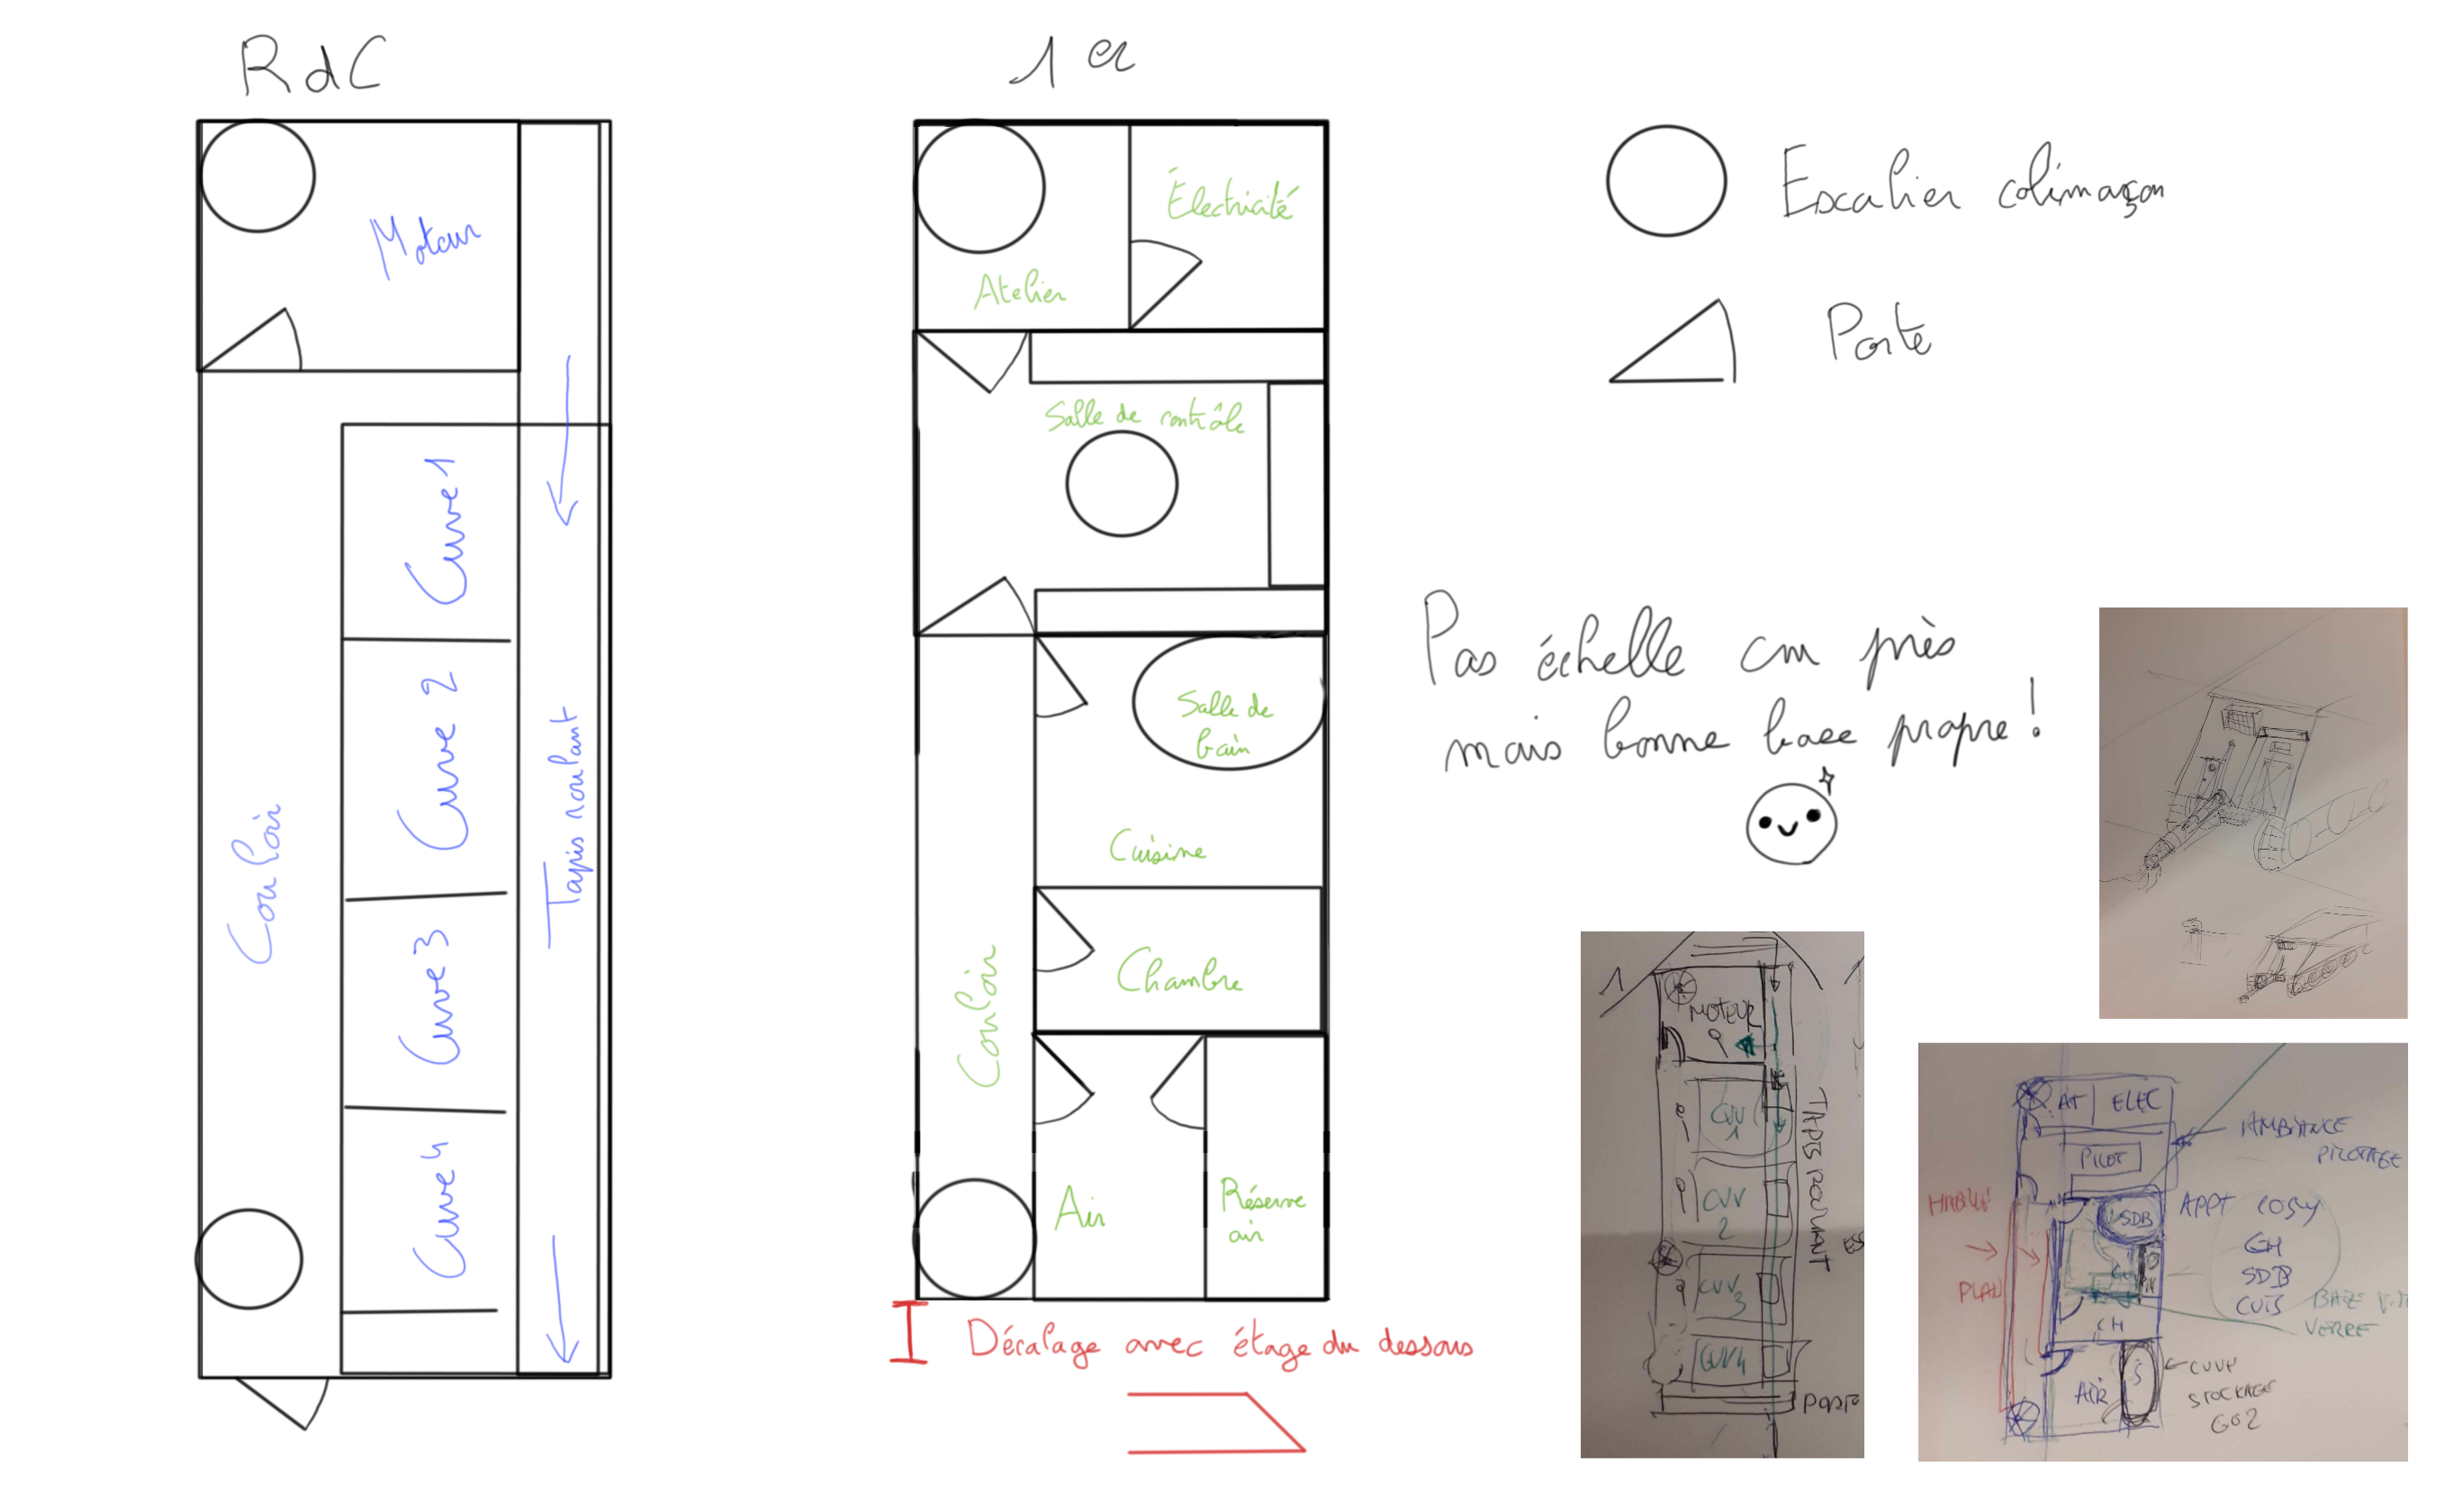 RdC
Moteur
Cuve 1
Cuve 2
Cuve 3
Cuve 4
Couloir
Tapis roulant
1er
Électricité
Atelier
Salle de contrôle
Salle de
bain
Cuisine
Chambre
Couloir
Air
Réserve
air
Décalage avec étage du dessous
Escalier colimaçon
Porte
Pas échelle cm près
mais bonne base propre !
1
MOTEUR
CUV
1
CUV
2
CUV
3
CUV4
TAPIS ROULANT
AT
ELEC
AMBIANCE
PILOTAGE
PILOT
SDB
APPT COSY
CH
SDB
CUIS
PLAN
VERRE
CH
AIR
CUVE
STOCKAGE